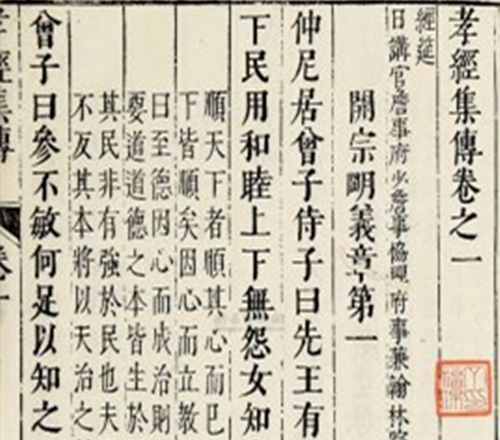 孝經集傳卷之一
經筵
日講官詹事府少詹事協理府事兼翰林院
開宗明義章第一
仲尼居曾子侍子曰先王有
下民用和睦上下無怨女知
順天下者順其心而已
下皆順矣因心而立教
曰至德因心而成治則
要道道德之本皆生於
其民非有強於民也夫
不反其本將以天治之
曾子曰參不敏何足以知之
孝經集傳
卷一